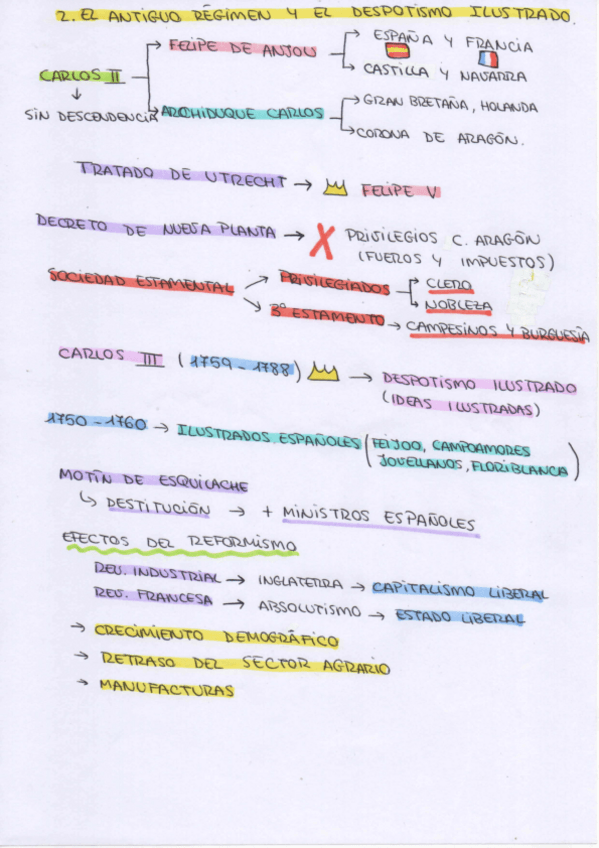 2. EL ANTIGUO RÉGIMEN Y EL DESPOTISMO ILUSTRADO.
CARLOS II
↓
SIN DESCENDENCIA
FELIPE DE ANJOU
→ ESPAÑA Y FRANCIA
→ CASTILLA Y NAVARRA
ARCHIDUQUE CARLOS
→ GRAN BRETAÑA, HOLANDA
→ CORONA DE ARAGÓN.
TRATADO DE UTRECHT → FELIPE V
DECRETO DE NUEVA PLANTA → X PRIVILEGIOS C. ARAGÓN
(FUEROS Y IMPUESTOS)
SOCIEDAD ESTAMENTAL
PRIVILEGIADOS
→ CLERO
→ NOBLEZA
3º ESTAMENTO → CAMPESINOS Y BURGUESÍA
CARLOS III (1759 - 1788) → DESPOTISMO ILUSTRADO
(IDEAS ILUSTRADAS)
1750 - 1760 → ILUSTRADOS ESPAÑOLES (FEIJOO, CAMPOAMORES
JOVELLANOS, FLORIBLANCA)
MOTÍN DE ESQUILACHE
↳ DESTITUCIÓN → + MINISTROS ESPAÑOLES
EFECTOS DEL REFORMISMO
REV. INDUSTRIAL → INGLATERRA → CAPITALISMO LIBERAL
REV. FRANCESA → ABSOLUTISMO → ESTADO LIBERAL
→ CRECIMIENTO DEMOGRÁFICO
→ RETRASO DEL SECTOR AGRARIO
→ MANUFACTURAS